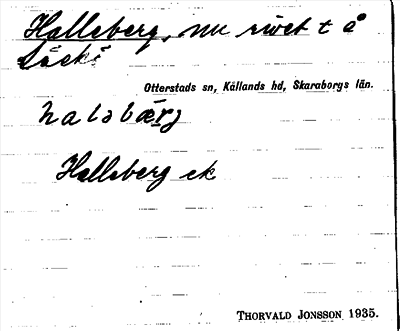 Halleberg, nu rivet t å
Säcks
Otterstads sn, Kållands hd, Skaraborgs län.
Halleberg ek
THORVALD JONSSON 1935.